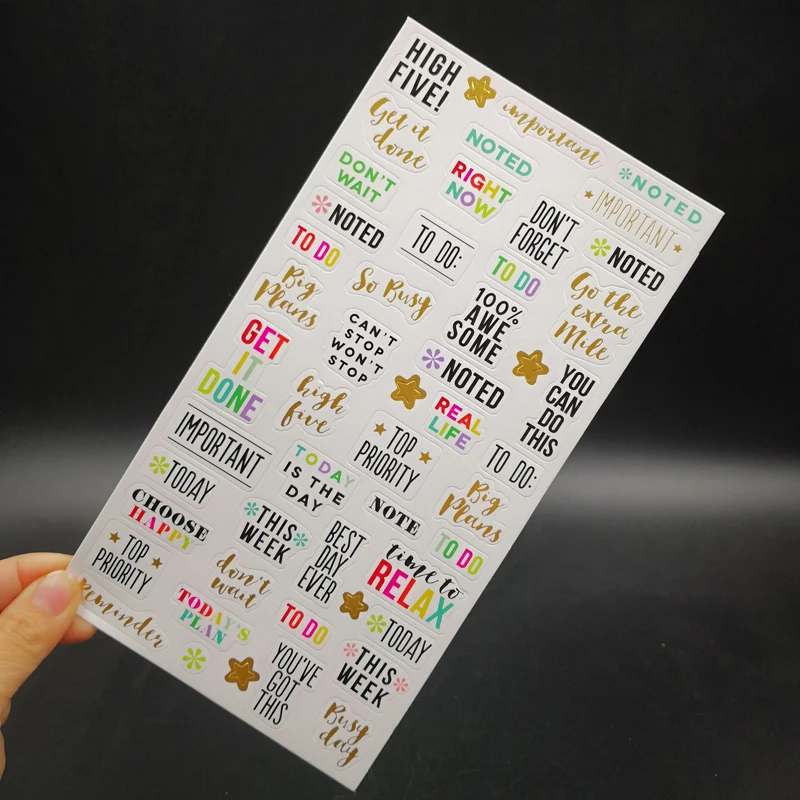 HIGH
FIVE!
important
Get it
done
NOTED
*NOTED
DON'T
WAIT
RIGHT
NOW
IMPORTANT
*NOTED
TO DO:
DON'T
FORGET
*NOTED
TO DO
TO DO
Go the
extra
Mile
Big
Plans
So Busy
100%
AWE
SOME
GET
IT
DONE
CAN'T
STOP
WON'T
STOP
*NOTED
YOU
CAN
DO
THIS
high
five
REAL
LIFE
IMPORTANT
TOP
PRIORITY
TO DO:
*TODAY
TODAY
IS THE
DAY
Big
Plans
CHOOSE
HAPPY
*THIS*
WEEK
NOTE
TO DO
TOP
PRIORITY
don't
wait
BEST
DAY
EVER
time to
RELAX
Reminder
TODAY'S
PLAN
TO DO
*TODAY
YOU'VE
GOT
THIS
*THIS
WEEK*
Busy
day